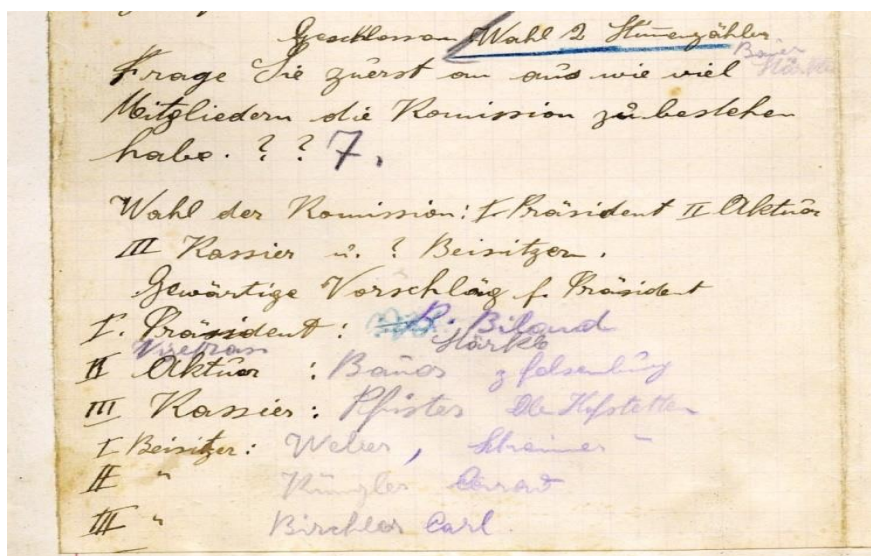 Wahl 2 Stimmenzähler
Bauer
Frage Sie zuerst an aus wie viel
Mitgliedern die Komission zu bestehen
habe. ? ? 7.
Wahl der Komission: I. Präsident II Aktuar
III Kassier u. ? Beisitzern.
Gewärtige Vorschläg f. Präsident
I. Präsident : B. Biland
Vizepräs Stärkle
II Aktuar : Bauer z Felsenburg
III Kassier: Pfister Ob. Hofstetten
I Beisitzer: Weber,
II " Künzler Conrad
III " Birchler Carl.